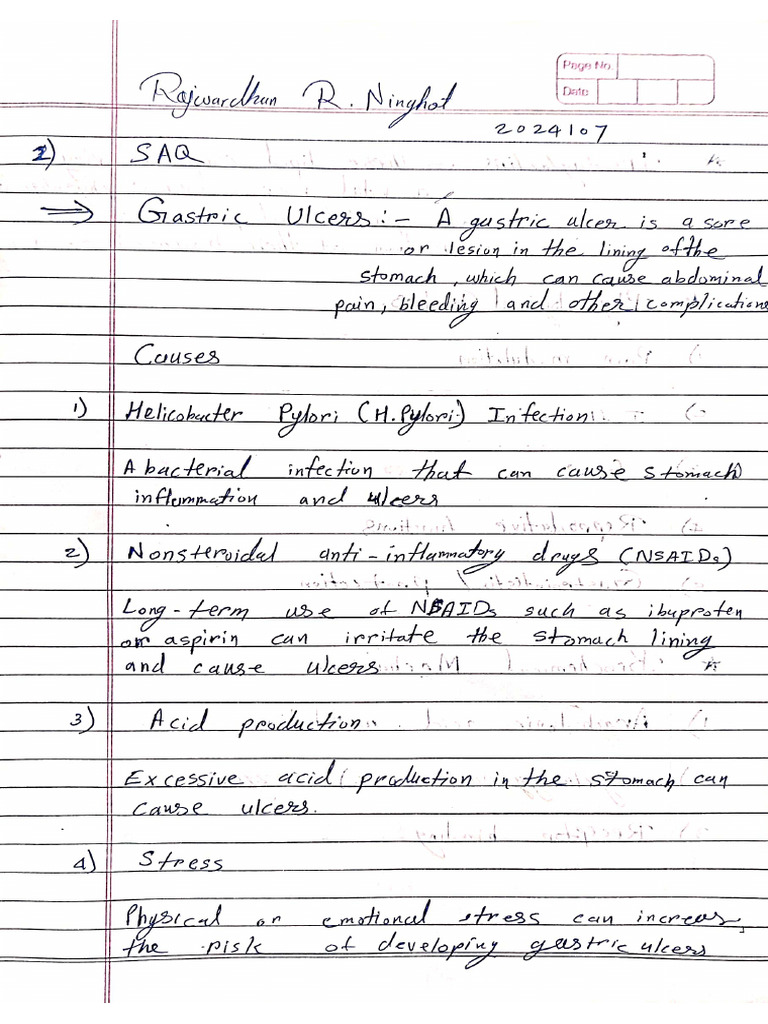 Page No.
Date
Rajwardhan R. Ninghot
2024107
1) SAQ
⇒ Gastric Ulcers :- A gastric ulcer is a sore
or lesion in the lining of the
stomach, which can cause abdominal
pain, bleeding and other complications
Causes
1) Helicobacter Pylori (H. Pylori) Infection
A bacterial infection that can cause stomach
inflammation and ulcers
2) Nonsteroidal anti-inflammatory drugs (NSAIDs)
Long-term use of NSAIDs such as ibuprofen
or aspirin can irritate the stomach lining
and cause ulcers
3) Acid production
Excessive acid production in the stomach can
cause ulcers.
4) Stress
Physical or emotional stress can increas
the risk of developing gastric ulcers